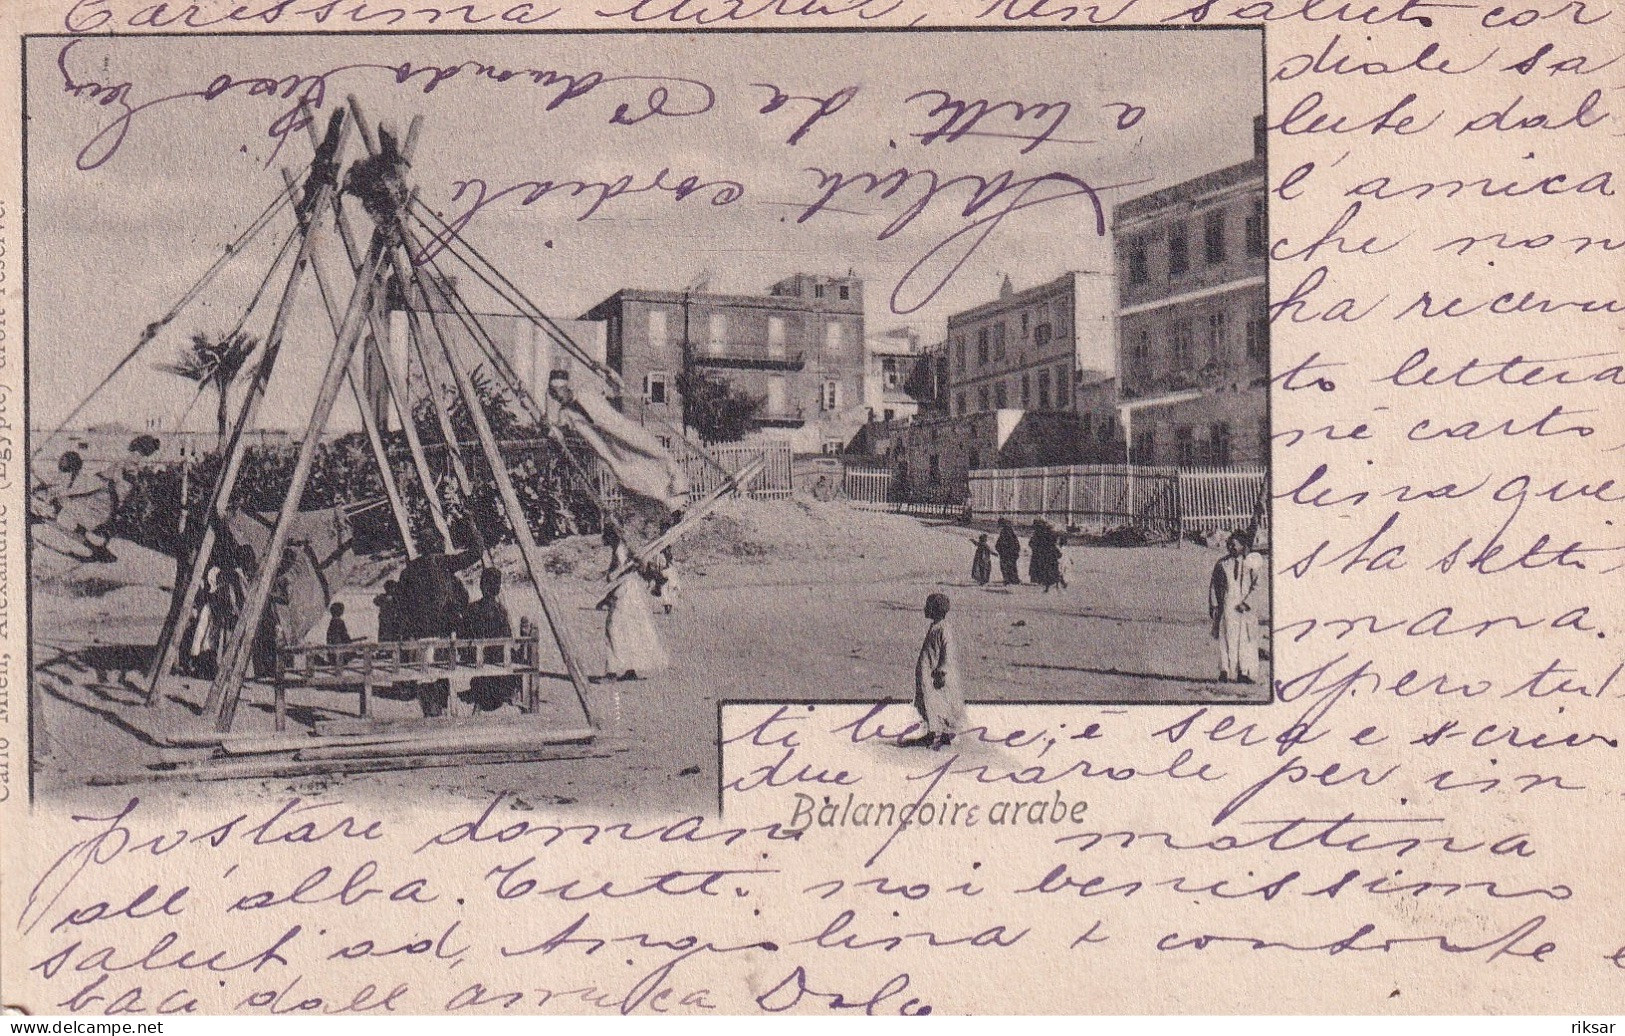 Carissima Maria, un saluto cor
diale sa
lute dal
l'amica
che non
ha ricevu
to lettera
nè carto
lina que
sta setti-
mana.
Spero tut
ti bene; è sera e scrivo
due parole per im-
postare domani mattina
all'alba. Tutti noi benissimo
saluti ad Angiolina e consorte e
baci dall'amica
Saluti cordiali
a tutti da
Balançoire arabe
Carlo Mieli, Alexandrie (Egypte) droit réservé.
riksar
delcampe.net